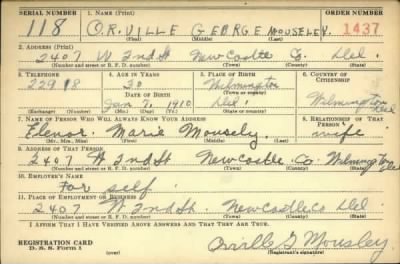 SERIAL NUMBER 1. NAME (Print) ORDER NUMBER
118 ORVILLE GEORGE MOUSELEY 1437
(First) (Middle) (Last)
2. ADDRESS (Print)
2407 W 2nd St New Castle Co. Del
(Number and street or R. F. D. number) (Town) (County) (State)
3. TELEPHONE 4. AGE IN YEARS 5. PLACE OF BIRTH 6. COUNTRY OF CITIZENSHIP
22918 30 Wilmington
DATE OF BIRTH (Town or county) Wilmington
Jan 7, 1910 Del.
(Exchange) (Number) (Mo.) (Day) (Yr.) (State or country)
7. NAME OF PERSON WHO WILL ALWAYS KNOW YOUR ADDRESS 8. RELATIONSHIP OF THAT PERSON
Elenor Marie Mousley wife
(Mr., Mrs., Miss) (First) (Middle) (Last)
9. ADDRESS OF THAT PERSON
2407 W 2nd St New Castle Co. Wilmington Del
(Number and street or R. F. D. number) (Town) (County) (State)
10. EMPLOYER'S NAME
For self
11. PLACE OF EMPLOYMENT OR BUSINESS
2407 W 2nd St. New Castle Co Del.
(Number and street or R. F. D. number) (Town) (County) (State)
I AFFIRM THAT I HAVE VERIFIED ABOVE ANSWERS AND THAT THEY ARE TRUE.
REGISTRATION CARD
D. S. S. Form 1 Orville G Mousley
(Registrant's signature)